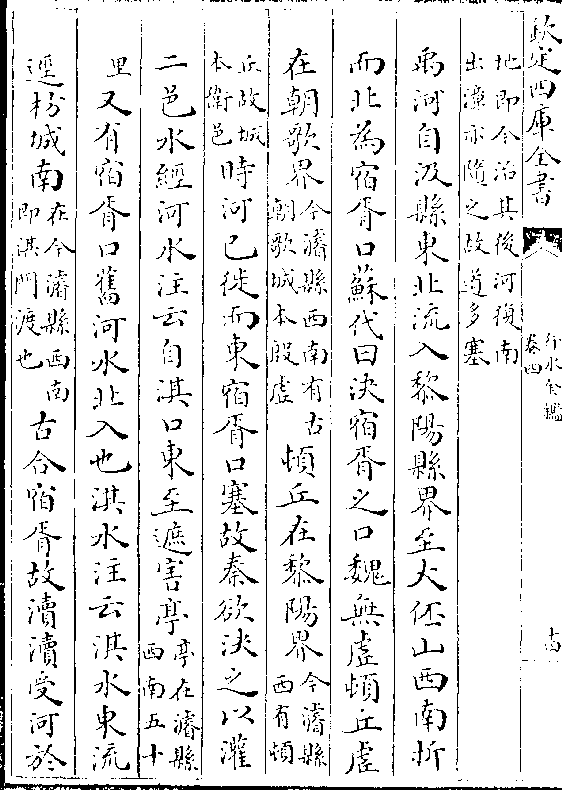 欽定四庫全書
行水金鑑
卷四
十四
地即今治其後河復南
出漳亦隨之故道多塞
禹河自汲縣東北流入黎陽縣界至大伾山西南折
而北為宿胥口蘇代曰決宿胥之口魏無虛頓丘虛
在朝歌界今濬縣西南有古朝歌城本殷虛頓丘在黎陽界今濬縣西有頓
丘故城本衛邑時河已徙而東宿胥口塞故秦欲決之以灌
二邑水經河水注云自淇口東至遮害亭亭在濬縣西南五十
里又有宿胥口舊河水北入也淇水注云淇水東流
逕枋城南在今濬縣西南即淇門渡也古合宿胥故瀆瀆受河於